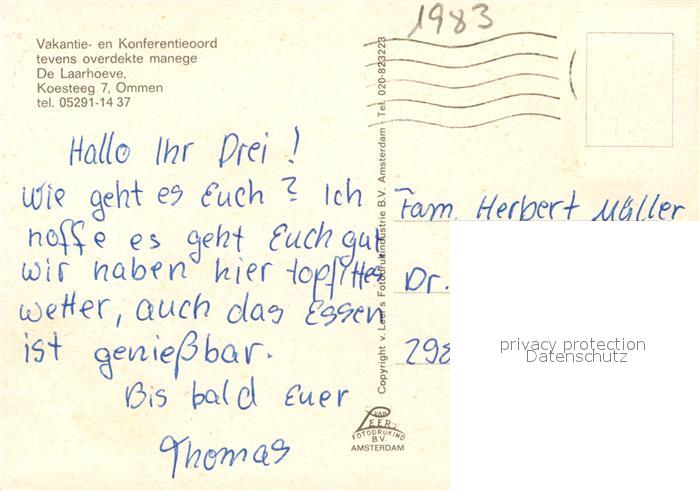 1983
Vakantie- en Konferentieoord
tevens overdekte manege
De Laarhoeve,
Koesteeg 7, Ommen
tel. 05291-14 37
Hallo Ihr Drei !
Wie geht es Euch ? Ich
hoffe es geht Euch gut
wir haben hier topfittes
wetter, auch das Essen
ist genießbar.
Bis bald Euer
Thomas
Copyright v. Leer's Fotodrukindustrie B.V. Amsterdam - Tel. 020-823223
Fam. Herbert Müller
Dr.
298
privacy protection
Datenschutz
VAN
LEER'S
FOTODRUKIND
B.V.
AMSTERDAM